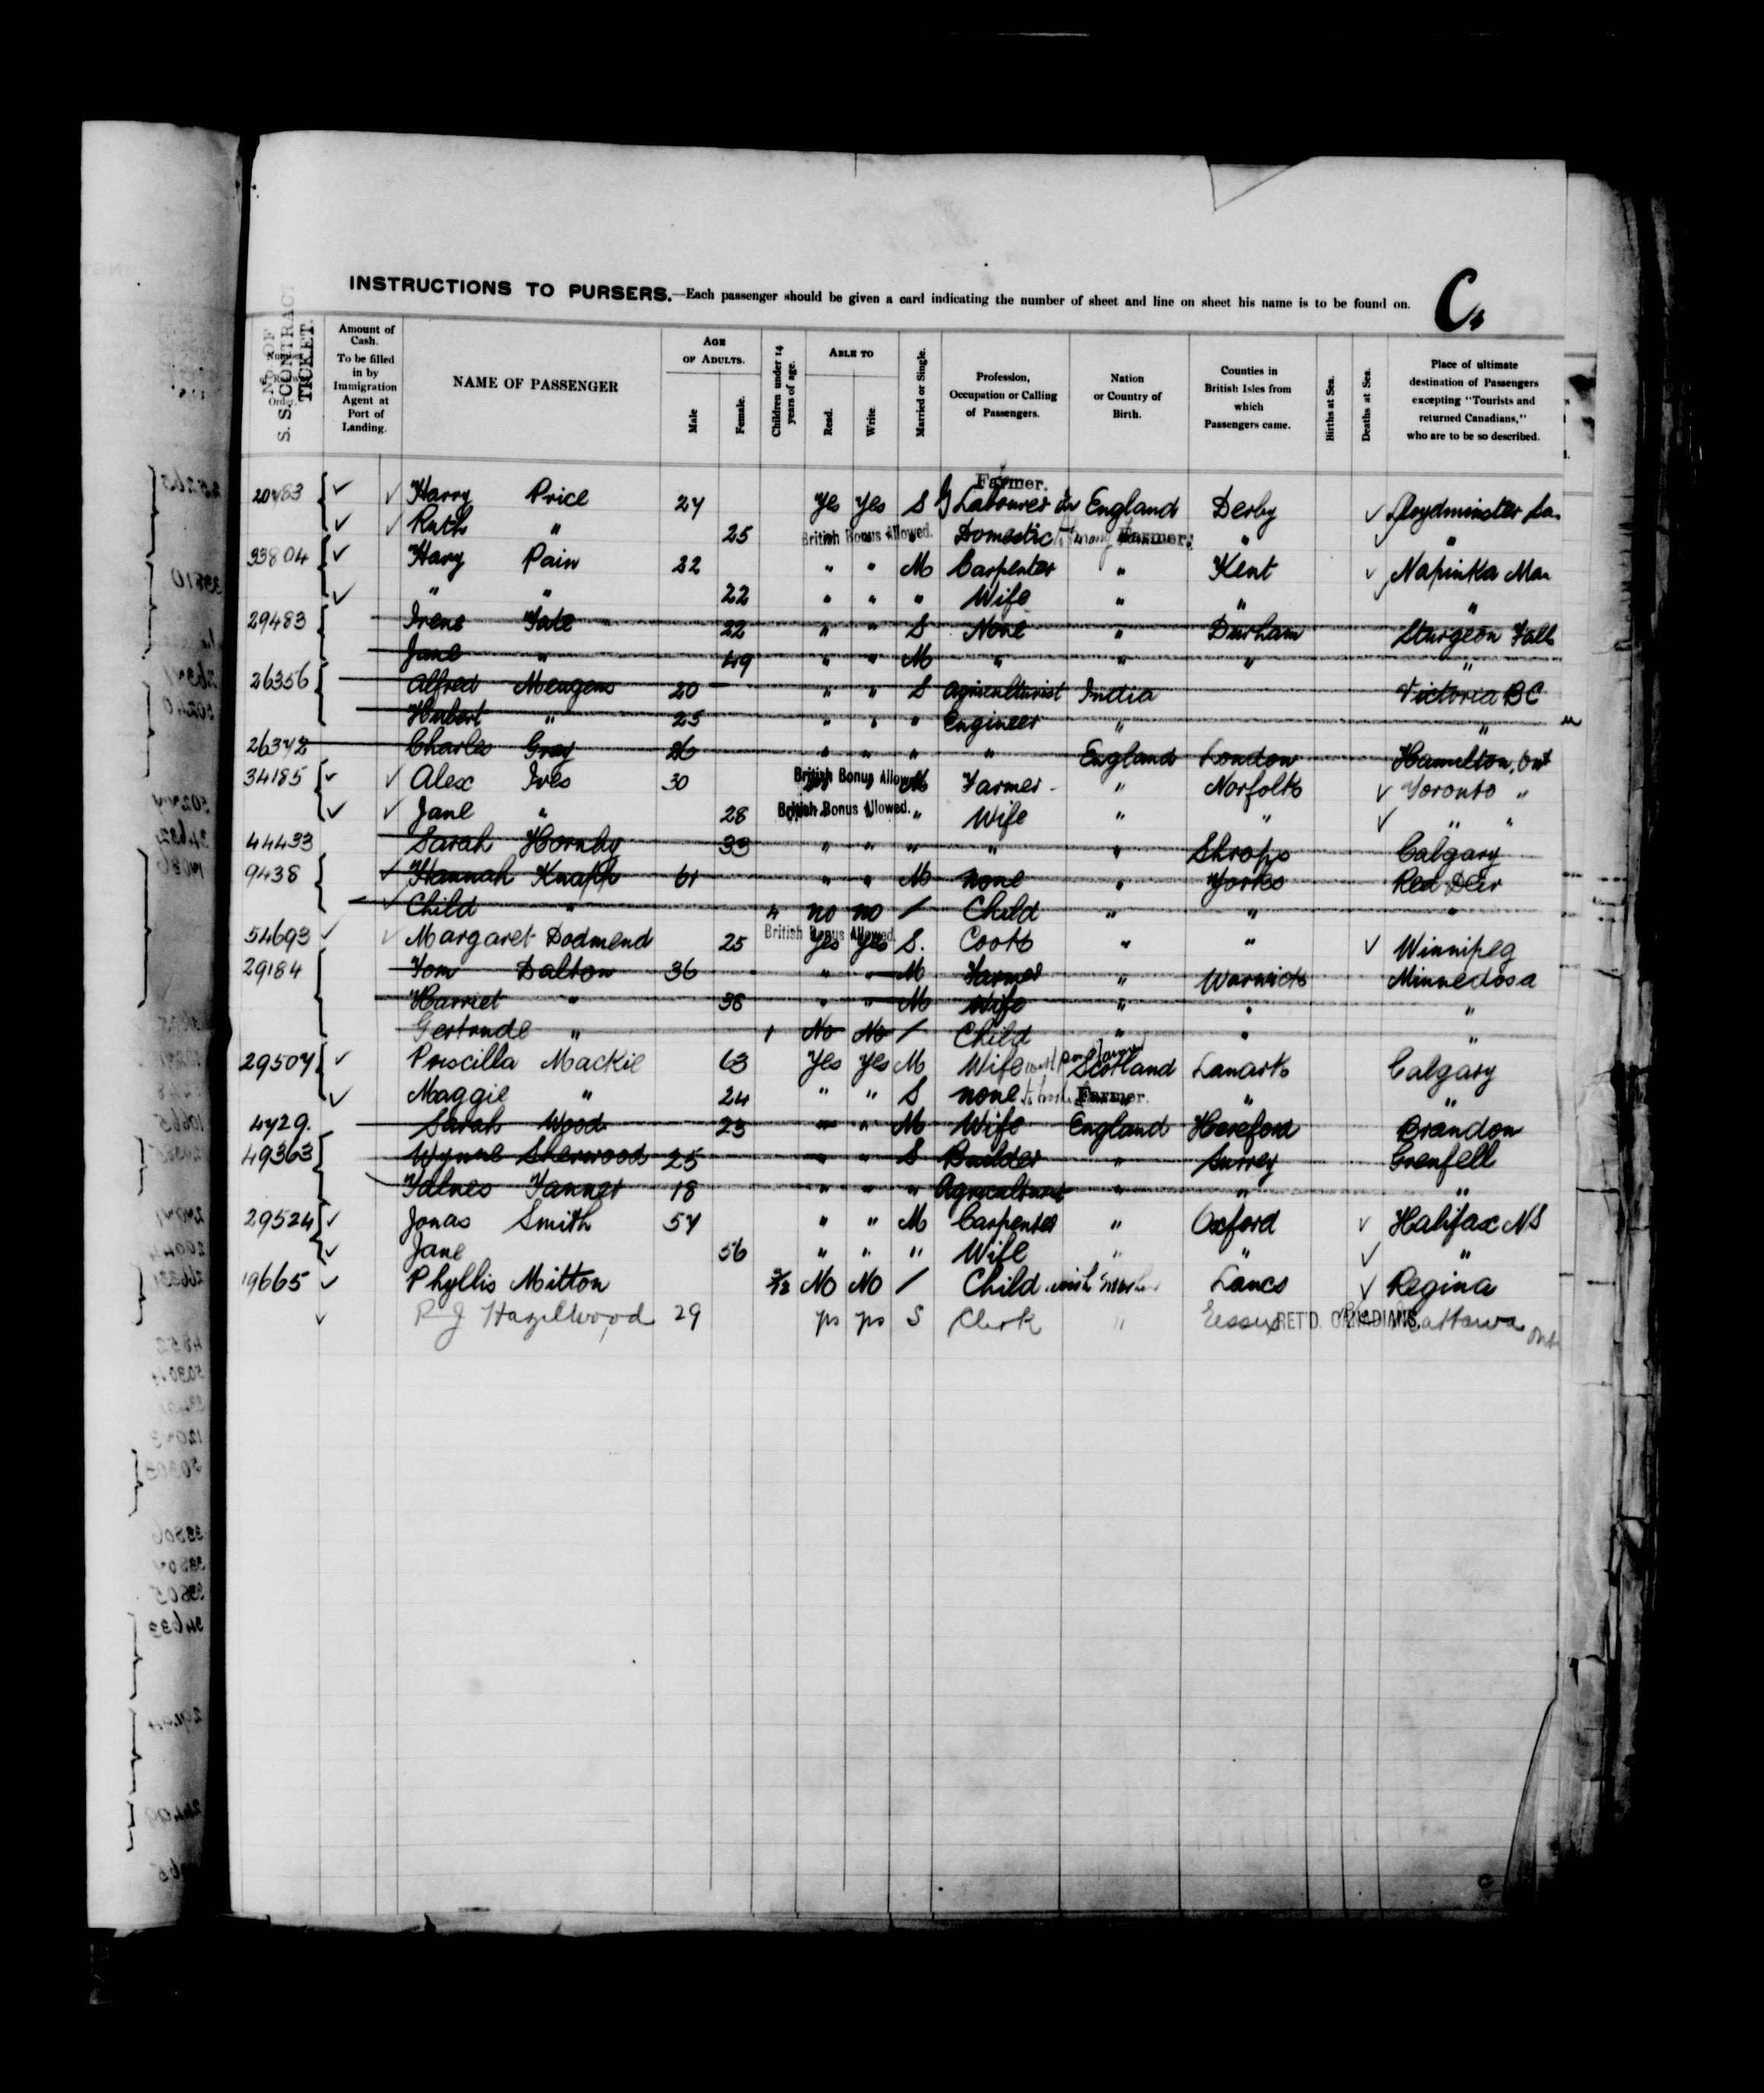 INSTRUCTIONS TO PURSERS.—Each passenger should be given a card indicating the number of sheet and line on sheet his name is to be found on.
C.
NO. OF S. S. CONTRACT TICKET.
Amount of Cash. To be filled in by Immigration Agent at Port of Landing.
NAME OF PASSENGER
AGE OF ADULTS. Male Female.
Children under 14 years of age.
ABLE TO Read. Write.
Married or Single.
Profession, Occupation or Calling of Passengers.
Nation or Country of Birth.
Counties in British Isles from which Passengers came.
Births at Sea.
Deaths at Sea.
Place of ultimate destination of Passengers excepting "Tourists and returned Canadians," who are to be so described.
Farmer.
Harry Price 27 Yes Yes S Labourer England Derby Lloydminster
Ruth " 25 British Bonus Allowed. Domestic Farmer. " "
33804 Harry Pain 22 " " M Carpenter " Kent Napinka Man
" " 22 " " " Wife " " "
29483 Irene Tate 22 " " S None " Durham Sturgeon Fall
Jane " 49 " " M " " " "
26356 Alfred 20 " " S Agriculturist India Victoria BC
Hubert " 25 " " " Engineer " "
Charles Grey 26 " " " " England London Hamilton, Ont
34185 Alex Ives 30 British Bonus Allowed M Farmer " Norfolk Toronto "
Jane " 28 British Bonus Allowed. " Wife " " " "
44433 Sarah Hornby 33 " " " " " Shrops Calgary
9438 Hannah Knapp 61 " " M none " Yorks Red Deer
Child " 4 no no / Child " " "
54693 Margaret Dodmend 25 British Bonus Allowed. Yes Yes S. Cook " " Winnipeg
29184 Tom Dalton 36 " " M Farmer " Warwick Minnedosa
Harriet " 38 " " M Wife " " "
Gertrude " 1 No No / Child " " "
29507 Priscilla Mackie 63 Yes Yes M Wife Scotland Lanark Calgary
Maggie " 24 " " S none Farmer. " "
4729. Sarah Wood 23 " " M Wife England Hereford Brandon
49363 Wynne Sherwood 25 " " S Builder " Surrey Grenfell
Tanner 18 " " " " " "
29524 Jonas Smith 57 " " M Carpenter " Oxford Halifax NS
Jane 56 " " " Wife " " "
19665 Phyllis Mitton No No / Child Lancs Regina
R J Hazellwood 29 yes yes S Clerk " Essex RET'D. CANADIANS. Ont